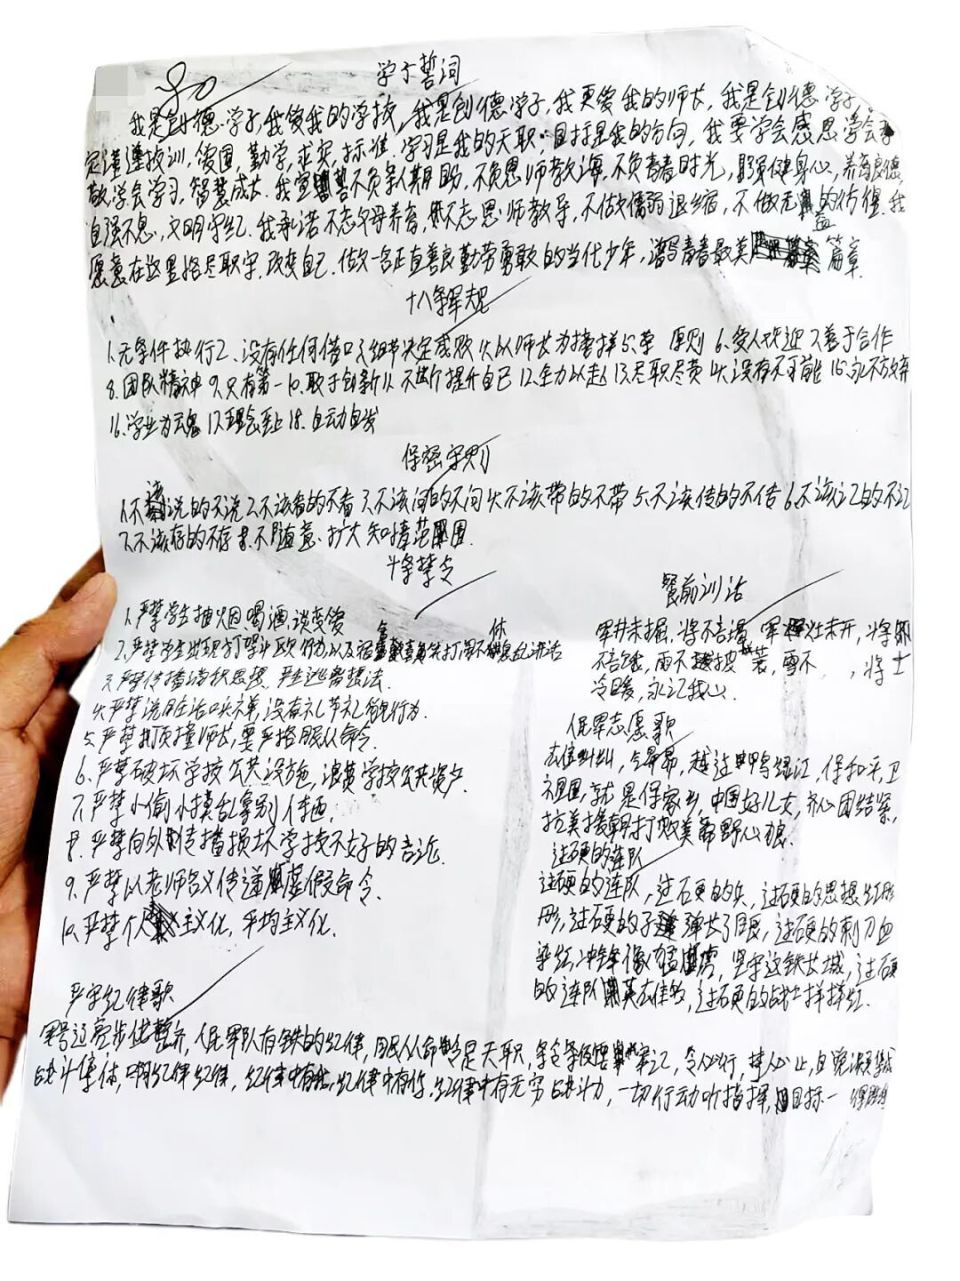 学子誓词
我是创德学子,我爱我的学校,我是创德学子,我更爱我的师长,我是创德学子,
定谨遵校训,爱国,勤学,求实,标准,学习是我的天职,目标是我的方向,我要学会感恩学会
敬,学会学习,智慧成长,我宣誓不负亲人期助,不负恩师教诲,不负青春时光,强健身心,养育良德
自强不息,文明守纪,我承诺不忘父母养育,不忘恩师教导,不做懦弱退缩,不做无益的彷徨,我
愿意在这里恪尽职守,改变自己,做一名正直善良勤劳勇敢的当代少年,谱写青春最美篇章.
十八条军规
1.无条件执行2、没有任何借口3.细节决定成败4.以师长为榜样5.荣 原则 6.受人欢迎 7.善于合作
8.团队精神 9.只有第一10.敢于创新11.不断提升自己12.全力以赴13.尽职尽责14.没有不可能15.永不放弃
16.学业为魂 17.理念至上18.自动自发
保密守则
1.不该说的不说2.不该看的不看3.不该问的不问4.不该带的不带5.不该传的不传6.不该记的不记
7.不该存的不存8.不随意扩大知情范围.
十条禁令
1.严禁学生抽烟、喝酒,谈恋爱
2.严禁学生出现打架斗殴行为以及
3.严禁传播消极思想,产生逃离想法.
4.严禁说脏话叫外号,没有礼节礼貌行为.
5.严禁顶撞师长,要严格服从命令.
6.严禁破坏学校公共设施,浪费学校公共资产
7.严禁小偷小摸乱拿别人东西.
8.严禁向外传播损坏学校不好的言论.
9.严禁以老师名义传递虚假命令.
10.严禁个人主义化,平均主义化.
餐前训话
军井未掘,将不言渴,军灶未开,将
不言饿,雨不披蓑,雪不 ,将士
冷暖,永记我心.
人民军志愿歌
雄赳赳,气昂昂,跨过鸭绿江,保和平,卫
祖国,就是保家乡,中国好儿女,齐心团结紧,
抗美援朝打败美帝野心狼.
过硬的连队
过硬的连队,过硬的兵,过硬的思想红彤
彤,过硬的子弹长了眼,过硬的刺刀血
染红,冲锋像猛虎,坚守这铁长城,过硬
的连队英雄多,过硬的战士样样红.
严守纪律歌
军号过亮步伐整齐,人民军队有铁的纪律,服从命令是天职,条令条例牢记,令必行,禁必止,自觉凝集成
战斗集体,啊纪律纪律,纪律中有我,纪律中有你,纪律中有无穷战斗力,一切行动听指挥,目标一